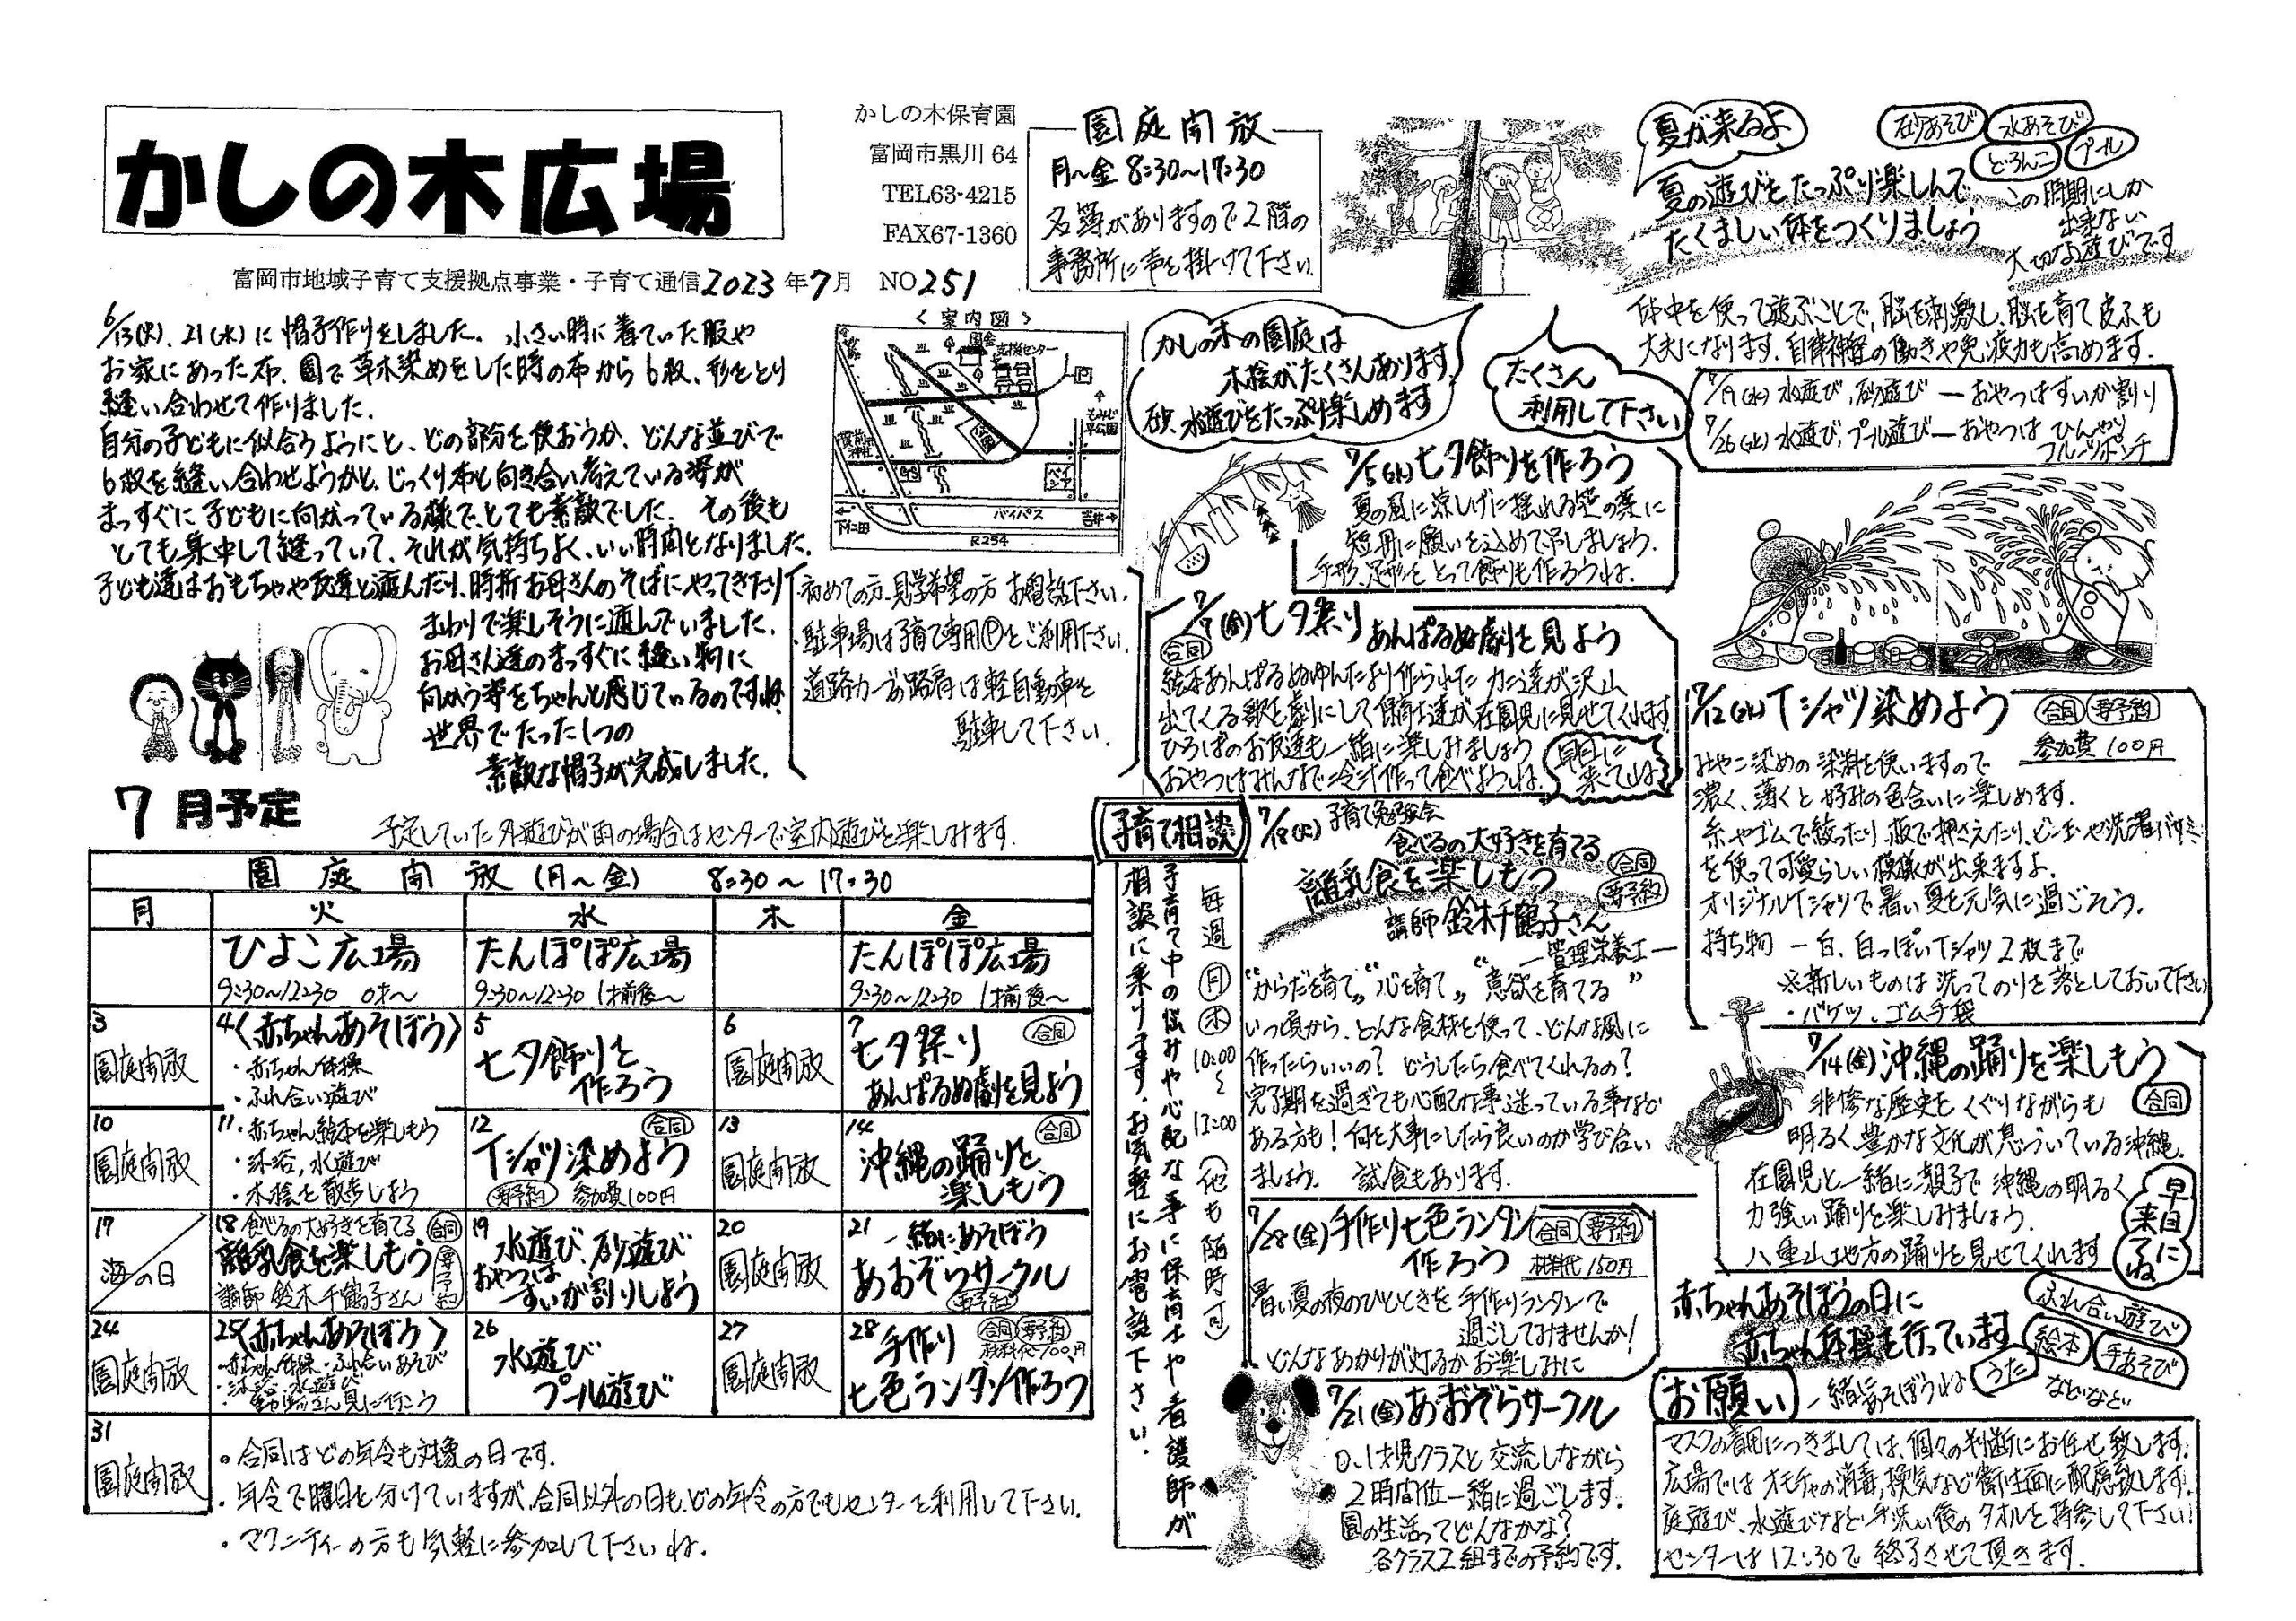 かしの木広場
富岡市地域子育て支援拠点事業・子育て通信2023年7月 NO251
かしの木保育園
富岡市黒川64
TEL63-4215
FAX67-1360
園庭開放
月〜金 8:30〜17:30
名簿がありますので2階の
事務所に声を掛けて下さい。
夏が来るよ
砂あそび
水あそび
どろんこ
プール
夏の遊びをたっぷり楽しんで
たくましい体をつくりましょう
この時期にしか
出来ない
大切な遊びです
体中を使って遊ぶことで、脳を刺激し、脳を育て皮ふも
丈夫になります。自律神経の働きや免疫力も高めます。
7/19(水) 水遊び、砂遊び ―おやつはすいか割り
7/26(水) 水遊び、プール遊び―おやつは ひんやり
フルーツポンチ
6/13(火)、21(水)に帽子作りをしました。小さい時に着ていた服や
お家にあった布、園で草木染めをした時の布から6枚、形をとり
縫い合わせて作りました。
自分の子どもに似合うようにと、どの部分を使おうか、どんな並びで
6枚を縫い合わせようかと、じっくり布と向き合い考えている姿が
まっすぐに子どもに向かっている様で、とても素敵でした。その後も
とても集中して縫っていて、それが気持ちよく、いい時間となりました。
子ども達はおもちゃや友達と遊んだり、時折お母さんのそばにやってきたり
まわりで楽しそうに遊んでいました。
お母さん達のまっすぐに縫い物に
向かう姿をちゃんと感じているのですね。
世界でたった1つの
素敵な帽子が完成しました。
<案内図>
支援センター
もみじ平公園
ベイシア
バイパス
下仁田
吉井
R254
かしの木の園庭は
木陰がたくさんあります
砂、水遊びをたっぷり楽しめます
たくさん
利用して下さい
・初めての方、見学希望の方 お電話下さい。
・駐車場は子育て専用Pをご利用下さい。
道路カーブの路肩は軽自動車を
駐車して下さい。
7/5(水)七夕飾りを作ろう
夏の風に涼しげに揺れる笹の葉に
短冊に願いを込めて吊しましょう。
手形、足形をとって飾りも作ろうね。
7/7(金)七夕祭り あんぱるぬ劇を見よう
合同
絵本あんぱるぬゆんたより作られた カニ達が沢山
出てくる歌を劇にして保育士達が在園児に見せてくれます
ひろばのお友達も一緒に楽しみましょう
おやつはみんなで冷汁作って食べようね。
早目に
来てね
7/12(水)Tシャツ染めよう
合同 要予約
参加費100円
みやこ染めの染料を使いますので
濃く、薄くと好みの色合いに楽しめます。
糸やゴムで絞ったり、板で押さえたり、ビー玉や洗濯バサミ
を使って可愛らしい模様が出来ますよ。
オリジナルTシャツで暑い夏を元気に過ごそう。
持ち物 ―白、白っぽいTシャツ2枚まで
※新しいものは洗ってのりを落としておいて下さい
・バケツ、ゴム手袋
7月予定
予定していた外遊びが雨の場合はセンターで室内遊びを楽しみます。
園庭開放(月〜金) 8:30〜17:30
月 火 水 木 金
ひよこ広場 たんぽぽ広場 たんぽぽ広場
9:30〜12:30 0才〜 9:30〜12:30 1才前後〜 9:30〜12:30 1才前後〜
3 園庭開放
4〈赤ちゃんあそぼう〉
・赤ちゃん体操
・ふれ合い遊び
5 七夕飾りを
作ろう
6 園庭開放
7 合同
七夕祭り
あんぱるぬ劇を見よう
10 園庭開放
11・赤ちゃん絵本を楽しもう
・沐浴、水遊び
・木陰を散歩しよう
12 合同
Tシャツ染めよう
要予約 参加費100円
13 園庭開放
14 合同
沖縄の踊りを
楽しもう
17 海の日
18 食べるの大好きを育てる 合同
離乳食を楽しもう 要予約
講師 鈴木千鶴子さん
19 水遊び、砂遊び
おやつは
すいか割りしよう
20 園庭開放
21 一緒にあそぼう
あおぞらサークル
要予約
24 園庭開放
25〈赤ちゃんあそぼう〉
・赤ちゃん体操・ふれ合いあそび
・沐浴、水遊び
・動物さん見に行こう
26 水遊び
プール遊び
27 園庭開放
28 手作り 合同 要予約
七色ランタン作ろう
31 園庭開放
・合同はどの年令も対象の日です。
・年令で曜日を分けていますが、合同以外の日も、どの年令の方でもセンターを利用して下さい。
・マタニティーの方も気軽に参加して下さいね。
子育て相談
毎週 月 木 10:00〜12:00(他も随時可)
子育て中の悩みや心配な事に保育士や看護師が
相談に乗ります。お気軽にお電話下さい。
7/18(火) 子育て勉強会
食べるの大好きを育てる
離乳食を楽しもう
合同
要予約
講師 鈴木千鶴子さん
―管理栄養士―
"からだを育て" "心を育て" "意欲を育てる"
いつ頃から、どんな食材を使って、どんな風に
作ったらいいの? どうしたら食べてくれるの?
完了期を過ぎても心配な事、迷っている事など
ある方も!何を大事にしたら良いのか学び合い
ましょう。 試食もあります。
7/14(金)沖縄の踊りを楽しもう
合同
非惨な歴史をくぐりながらも
明るく、豊かな文化が息づいている沖縄。
在園児と一緒に、親子で沖縄の明るく
力強い踊りを楽しみましょう。
八重山地方の踊りを見せてくれます
早目に
来てね
7/28(金)手作り七色ランタン
作ろう
合同 要予約
材料代150円
暑い夏の夜のひとときを手作りランタンで
過ごしてみませんか!
どんなあかりが灯るかお楽しみに
赤ちゃんあそぼうの日に
赤ちゃん体操を行っています
一緒にあそぼうね
ふれ合い遊び
絵本
手あそび
うた
などなど
7/21(金)あおぞらサークル
0、1才児クラスと交流しながら
2時間位一緒に過ごします。
園の生活ってどんなかな?
各クラス2組までの予約です。
お願い
マスクの着用につきましては、個々の判断にお任せ致します。
広場ではオモチャの消毒、換気など衛生面に配慮致します。
庭遊び、水遊びなど手洗い後のタオルを持参して下さい。
センターは12:30で終了させて頂きます。